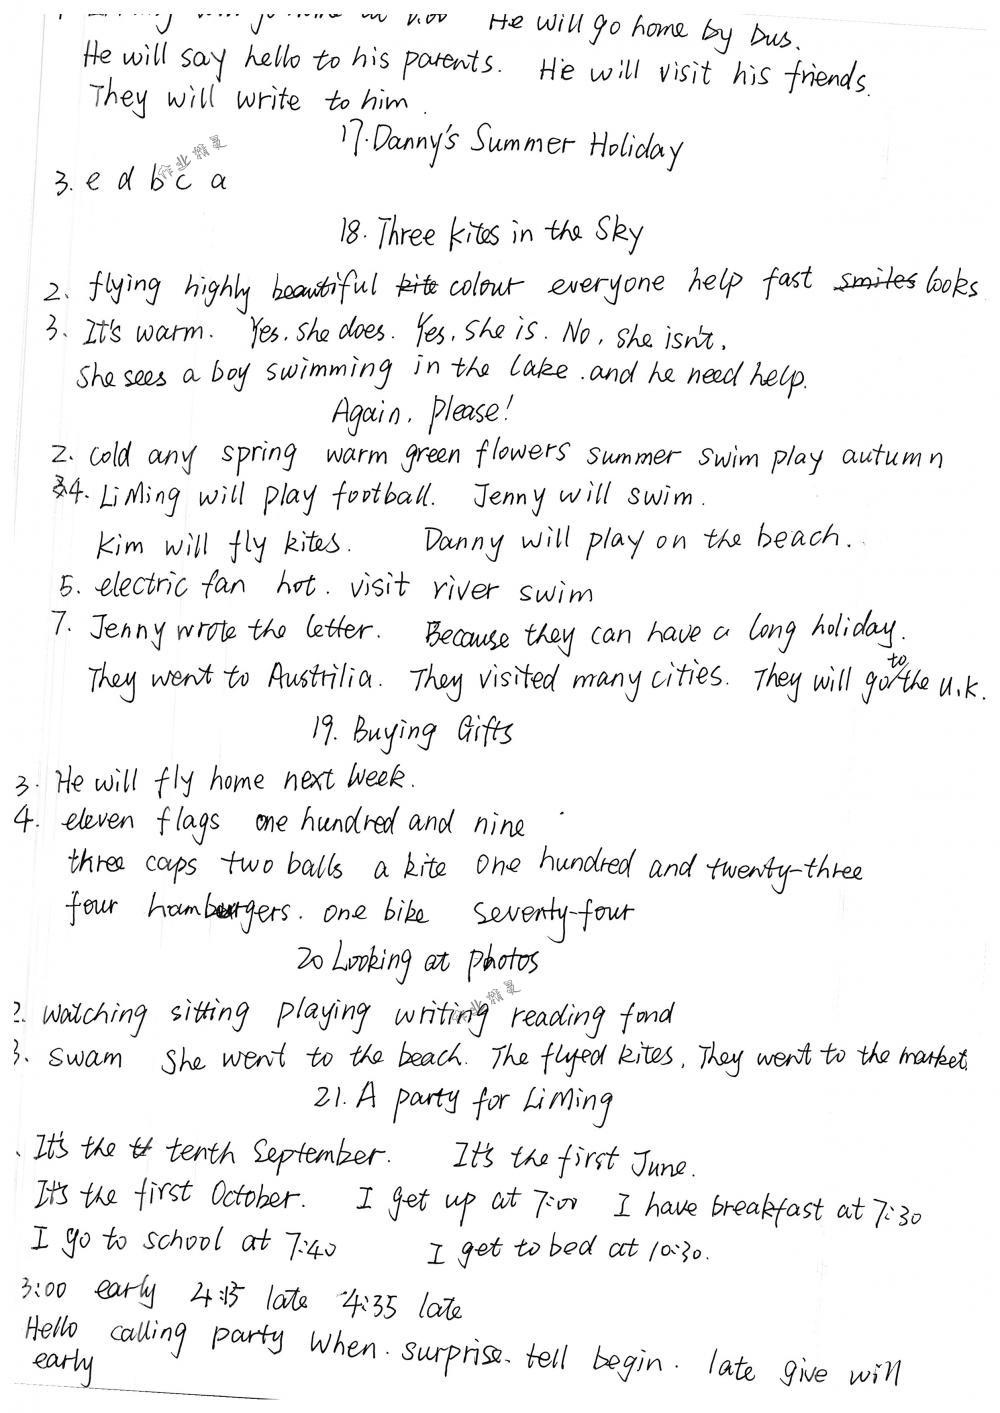 He will go home by bus.
He will say hello to his parents. He will visit his friends.
They will write to him.
17. Danny's Summer Holiday
作业精灵
3. e d b c a
18. Three kites in the Sky
2. flying highly beautiful kite colour everyone help fast smiles looks
3. It's warm. Yes, she does. Yes, she is. No, she isn't.
She sees a boy swimming in the lake .and he need help.
Again, please!
2. cold any spring warm green flowers summer swim play autumn
4. LiMing will play football. Jenny will swim.
Kim will fly kites. Danny will play on the beach.
5. electric fan hot. visit river swim
7. Jenny wrote the letter. Because they can have a long holiday.
They went to Austrilia. They visited many cities. They will go to the U.K.
19. Buying Gifts
3. He will fly home next week.
4. eleven flags one hundred and nine
three caps two balls a kite one hundred and twenty-three
four hamburgers. one bike seventy-four
20 Looking at photos
作业精灵
2. watching sitting playing writing reading fond
3. swam She went to the beach. The flyed kites. They went to the market.
21. A party for LiMing
It's the tenth September. It's the first June.
It's the first October. I get up at 7:00 I have breakfast at 7:30
I go to school at 7:40 I get to bed at 10:30.
3:00 early 4:15 late 4:35 late
Hello calling party When. surprise. tell begin. late give will
early